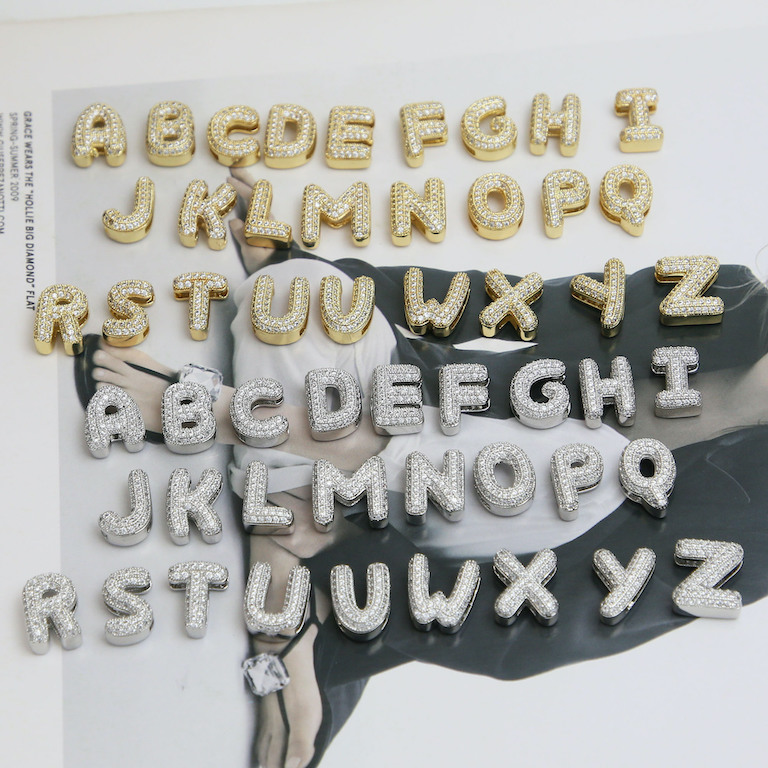 A B C D E F G H I
J K L M N O P Q
R S T U U W X Y Z
A B C D E F G H I
J K L M N O P Q
R S T U U W X Y Z
GRACE WEARS THE "HOLLIE BIG DIAMOND" FLAT
SPRING-SUMMER 2009